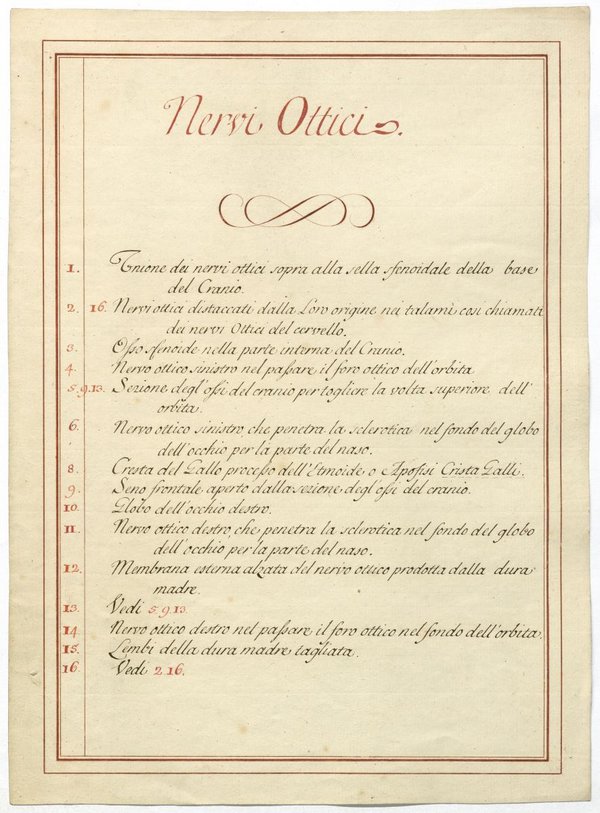 Nervi Ottici.
1. Unione dei nervi ottici sopra alla sella sfenoidale della base
del Cranio.
2. 16. Nervi ottici distaccati dalla Loro origine nei talami così chiamati
dei nervi Ottici del cervello.
3. Osso sfenoide nella parte interna del Cranio.
4. Nervo ottico sinistro nel passare il foro ottico dell'orbita
5.9.13. Sezione degl'ossi del cranio per togliere la volta superiore dell'
orbita.
6. Nervo ottico sinistro, che penetra la sclerotica nel fondo del globo
dell'occhio per la parte del naso.
8. Cresta del Gallo processo dell'Etmoide o Apofisi Crista Galli.
9. Seno frontale aperto dalla sezione degl'ossi del cranio.
10. Globo dell'occhio destro.
11. Nervo ottico destro, che penetra la sclerotica nel fondo del globo
dell'occhio per la parte del naso.
12. Membrana esterna alzata del nervo ottico prodotta dalla dura
madre.
13. Vedi 5.9.13.
14. Nervo ottico destro nel passare il foro ottico nel fondo dell'orbita.
15. Lembi della dura madre tagliata.
16. Vedi 2.16.